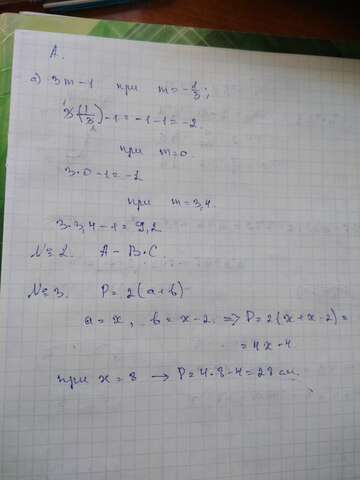 А.
а) 3m-1 при m=-1/3;
3·(-1/3)-1=-1-1=-2.
при m=0.
3·0-1=-1
при m=3,4.
3·3,4-1=9,2
№2. А-В·С.
№3. P=2(a+b)
a=x, b=x-2. => P=2(x+x-2)=
=4x-4
при x=8 → P=4·8-4=28 см.